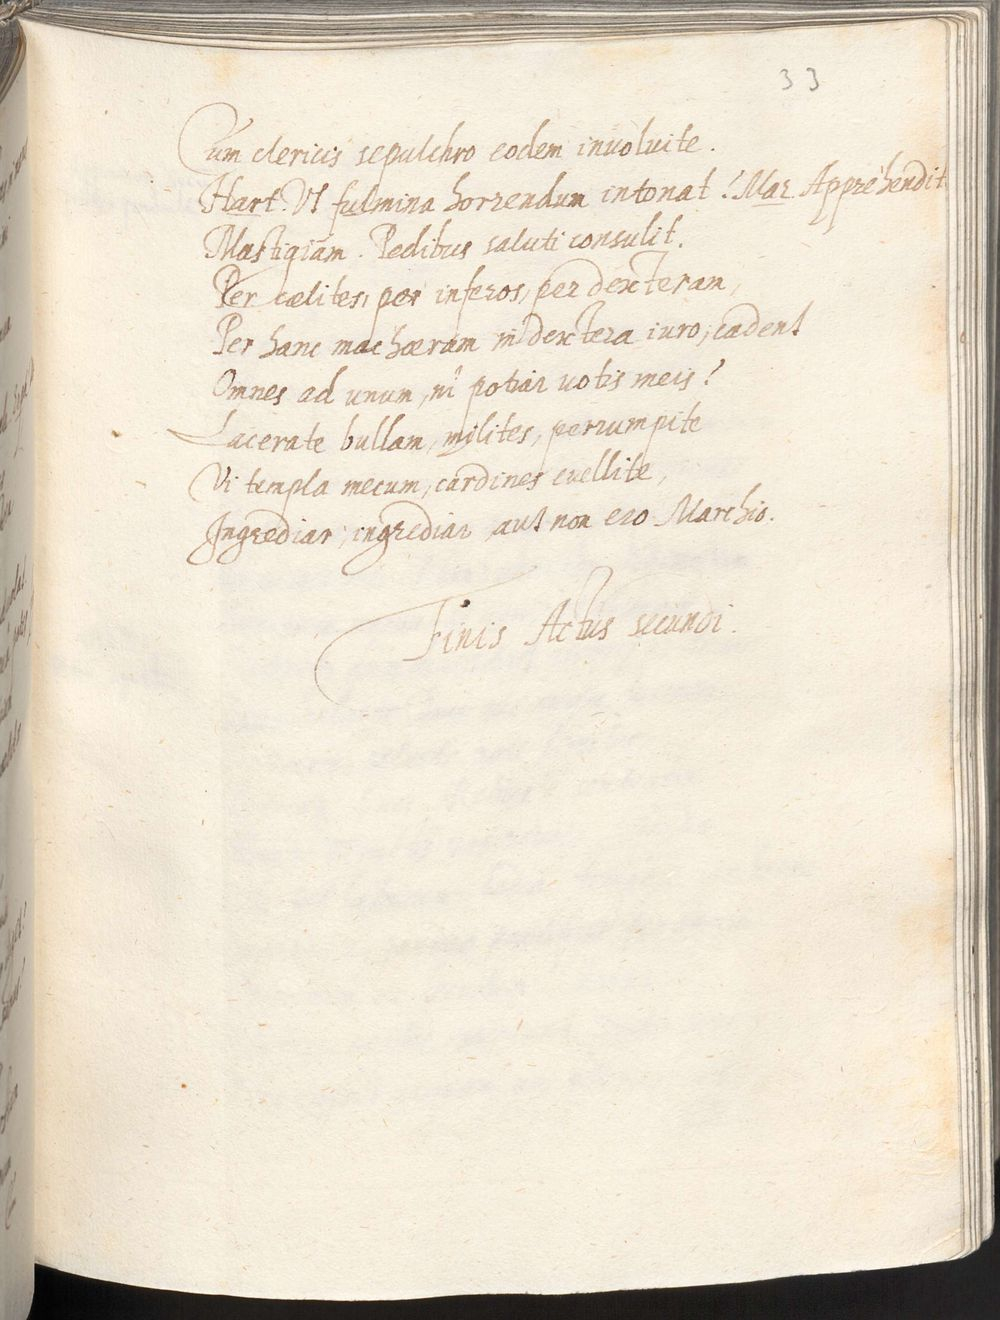 33
Cum clericis sepulchro eodem involvite.
Hart. Ut fulmina horrendum intonat! Mar. Apprehendit
Mastigiam. Pedibus saluti consulit.
Per cœlites, per inferos, per dexteram,
Per hanc machœram in dextera iuro, cadent
Omnes ad unum, ni potiar votis meis!
Lacerate bullam, milites, perrumpite
Vi templa mecum, cardines evellite,
Ingrediar, ingrediar aut non ero Marchio.
Finis Actus secundi.